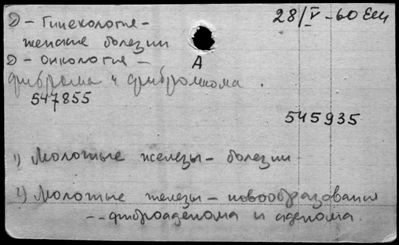 Д - Гинекология - 28/V - 60 Еш
женские болезни
Д - Онкология - А
фиброма и фибромиома.
547855
545935
1) Молочные железы - болезни
2) Молочные железы - новообразования
-- фиброаденома и аденома.